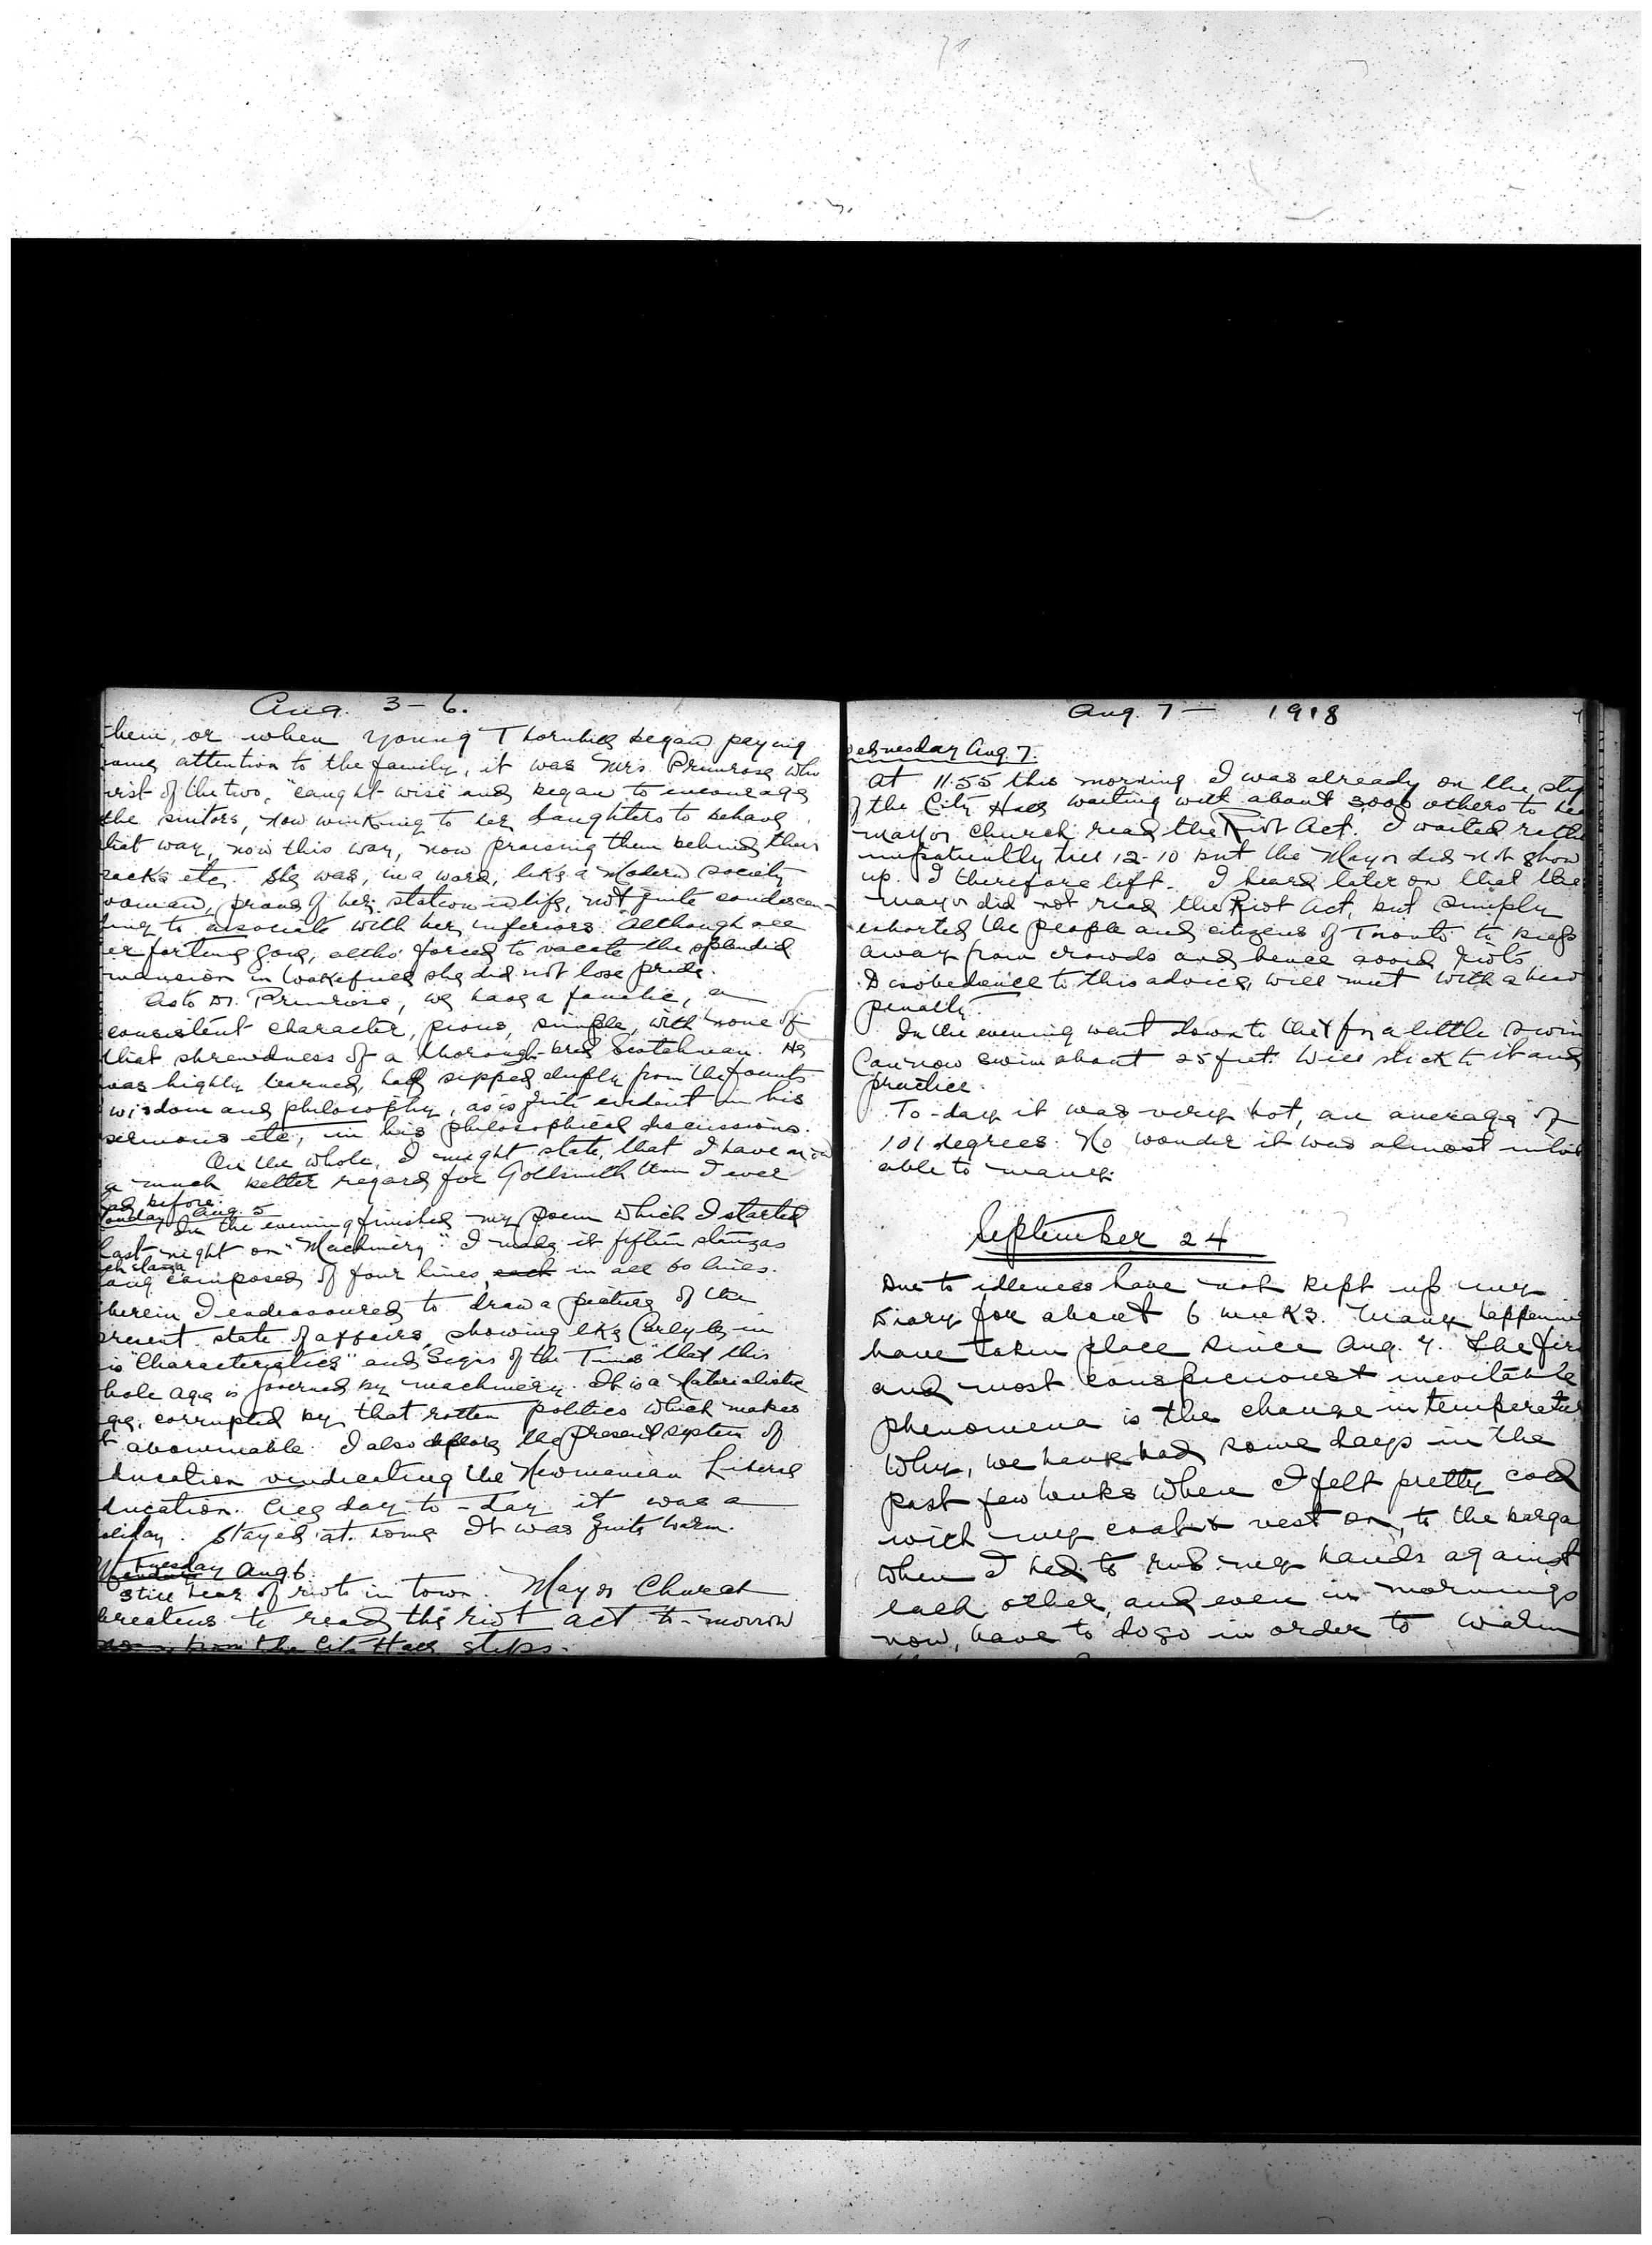 Aug. 3-6.
them, or when young Thornhill began paying
some attention to the family, it was Mrs. Primrose who
first of the two, "caught wise" and began to encourage
the suitors, now winking to her daughters to behave
that way, now this way, now praising them behind their
backs etc. She was, in a word, like a modern society
woman, proud of her station in life, not quite condescen-
ding to associate with her inferiors. Although all
her fortune gone, altho' forced to vacate the splendid
mansion in Wakefield she did not lose pride.
As to Dr. Primrose, we have a fanatic, a
consistent character, pious, simple, with none of
that shrewdness of a thorough-bred Scotchman. He
was highly learned, had sipped deeply from the founts
wisdom and philosophy, as is quite evident in his
sermons etc, in his philosophical discussions.
On the whole, I might state, that I have now
a much better regard for Goldsmith than I ever
had before.
Monday Aug. 5
In the evening finished my poem which I started
last night on "Machinery". I made it fifteen stanzas
each stanza
being composed of four lines, each in all 60 lines.
Wherein I endeavoured to draw a picture of the
present state of affairs, showing like Carlyle in
his "Characteristics" and "Signs of the Times" that this
whole age is governed by machinery. It is a Materialistic
age, corrupted by that rotten politics which makes
it abominable. I also deplore the present system of
Education vindicating the Newmanian Liberal
Education. All day to-day it was a
holiday. Stayed at home. It was quite warm.
Tuesday Aug 6.
Still hear of riots in town. Mayor Church
threatens to read the riot act to-morrow
noon from the City Hall steps.
Aug. 7 — 1918
Wednesday Aug 7.
At 11:55 this morning I was already on the step
of the City Hall waiting with about 3000 others to hea
Mayor Church read the Riot Act. I waited rathe
impatiently till 12-10 but the Mayor did not show
up. I therefore left. I heard later on that the
mayor did not read the Riot Act, but simply
exhorted the people and citizens of Toronto to keep
away from crowds and hence avoid riots.
Disobedience to this advice, will meet with a heav
penalty.
In the evening went down to the Y for a little swim
Can now swim about 25 feet. Will stick to it and
practice.
To-day it was very hot, an average of
101 degrees. No wonder it was almost intol
able to many.
September 24
Due to idleness have not kept up my
diary for about 6 weeks. Many happenin
have taken place since Aug. 7. The firs
and most conspicuous & inevitable
phenomena is the change in temperatur
Why, we have had some days in the
past few weeks when I felt pretty cold
with my coat & vest on, to the barga
when I had to rub my hands against
each other, and even in mornings
now, have to do so in order to warm